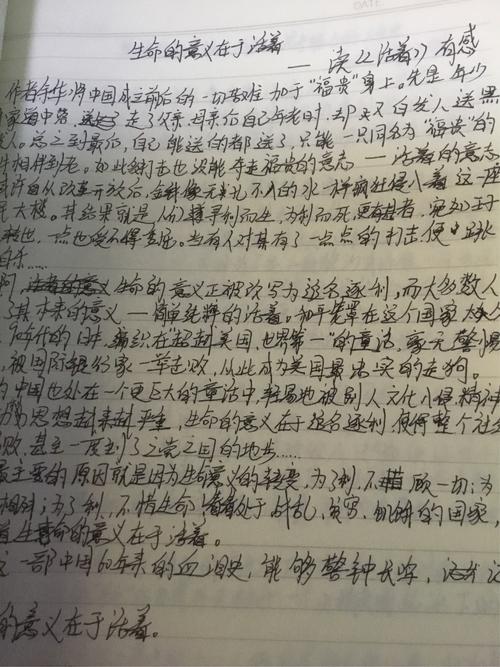 生命的意义在于活着
——读《活着》有感
作者余华将中国成立前后的一切苦难加于“福贵”身上。先是年少
家道中落,送走了父亲、母亲,但自己年老时,却又白发人送黑
人。总之到最后,自己能送的都送了,只能一只同名为“福贵”的
牛相伴到老。如此打击也没能夺走福贵的意志——活着的意志
自从改革开放后,金钱像无孔不入的水一样疯狂侵入着这一座
大楼。其结果就是人们趋利而生,为利而死,更有甚者,宛如玉
一点也受不得委屈。当有人对其有了一点点的打击,便
自杀……
生命的意义正被改写为追名逐利,而大多数人
了其本来的意义——简单纯粹的活着。和平笼罩在这个国家太久
年代的日本,编织在“超越美国,世界第一”的童话,毫无警惕
被国际银行家一举击败,从此成为美国最忠实的走狗。
中国也处在一个更巨大的童话中,轻易地被别人文化入侵,精神
思想越来越严重,生命的意义在于追名逐利,使得整个社会
败,甚至一度到了亡党亡国的地步……
最主要的原因就是因为生命意义的转变,为了利,不惜顾一切;为
相斗;为了利,不惜生命 处于战乱、贫穷、饥饿的国家,
生命的意义在于活着。
一部中国60年来的血泪史,能够警钟长鸣,
的意义在于活着。